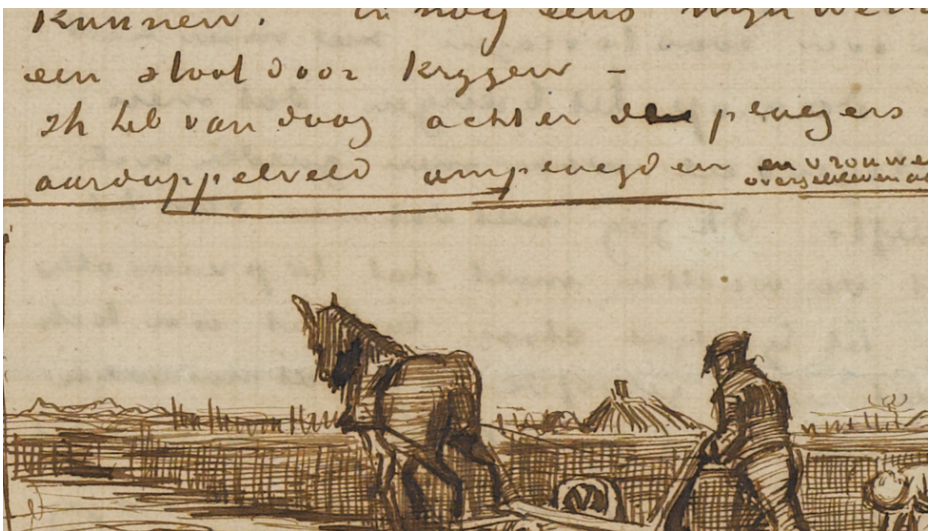 kunnen. en nog eens mijn werk
een stoot door krygen –
Ik heb van daag achter de ploegers
aardappelveld omploegden en vrouwe